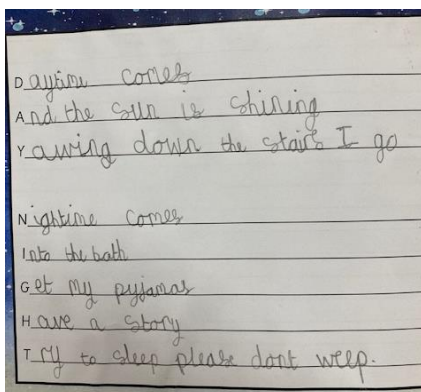 Daytime comes
And the sun is shining
Yawing down the stairs I go
Nightime comes
Into the bath
Get my pyjamas
Have a story
Try to sleep please dont weep.